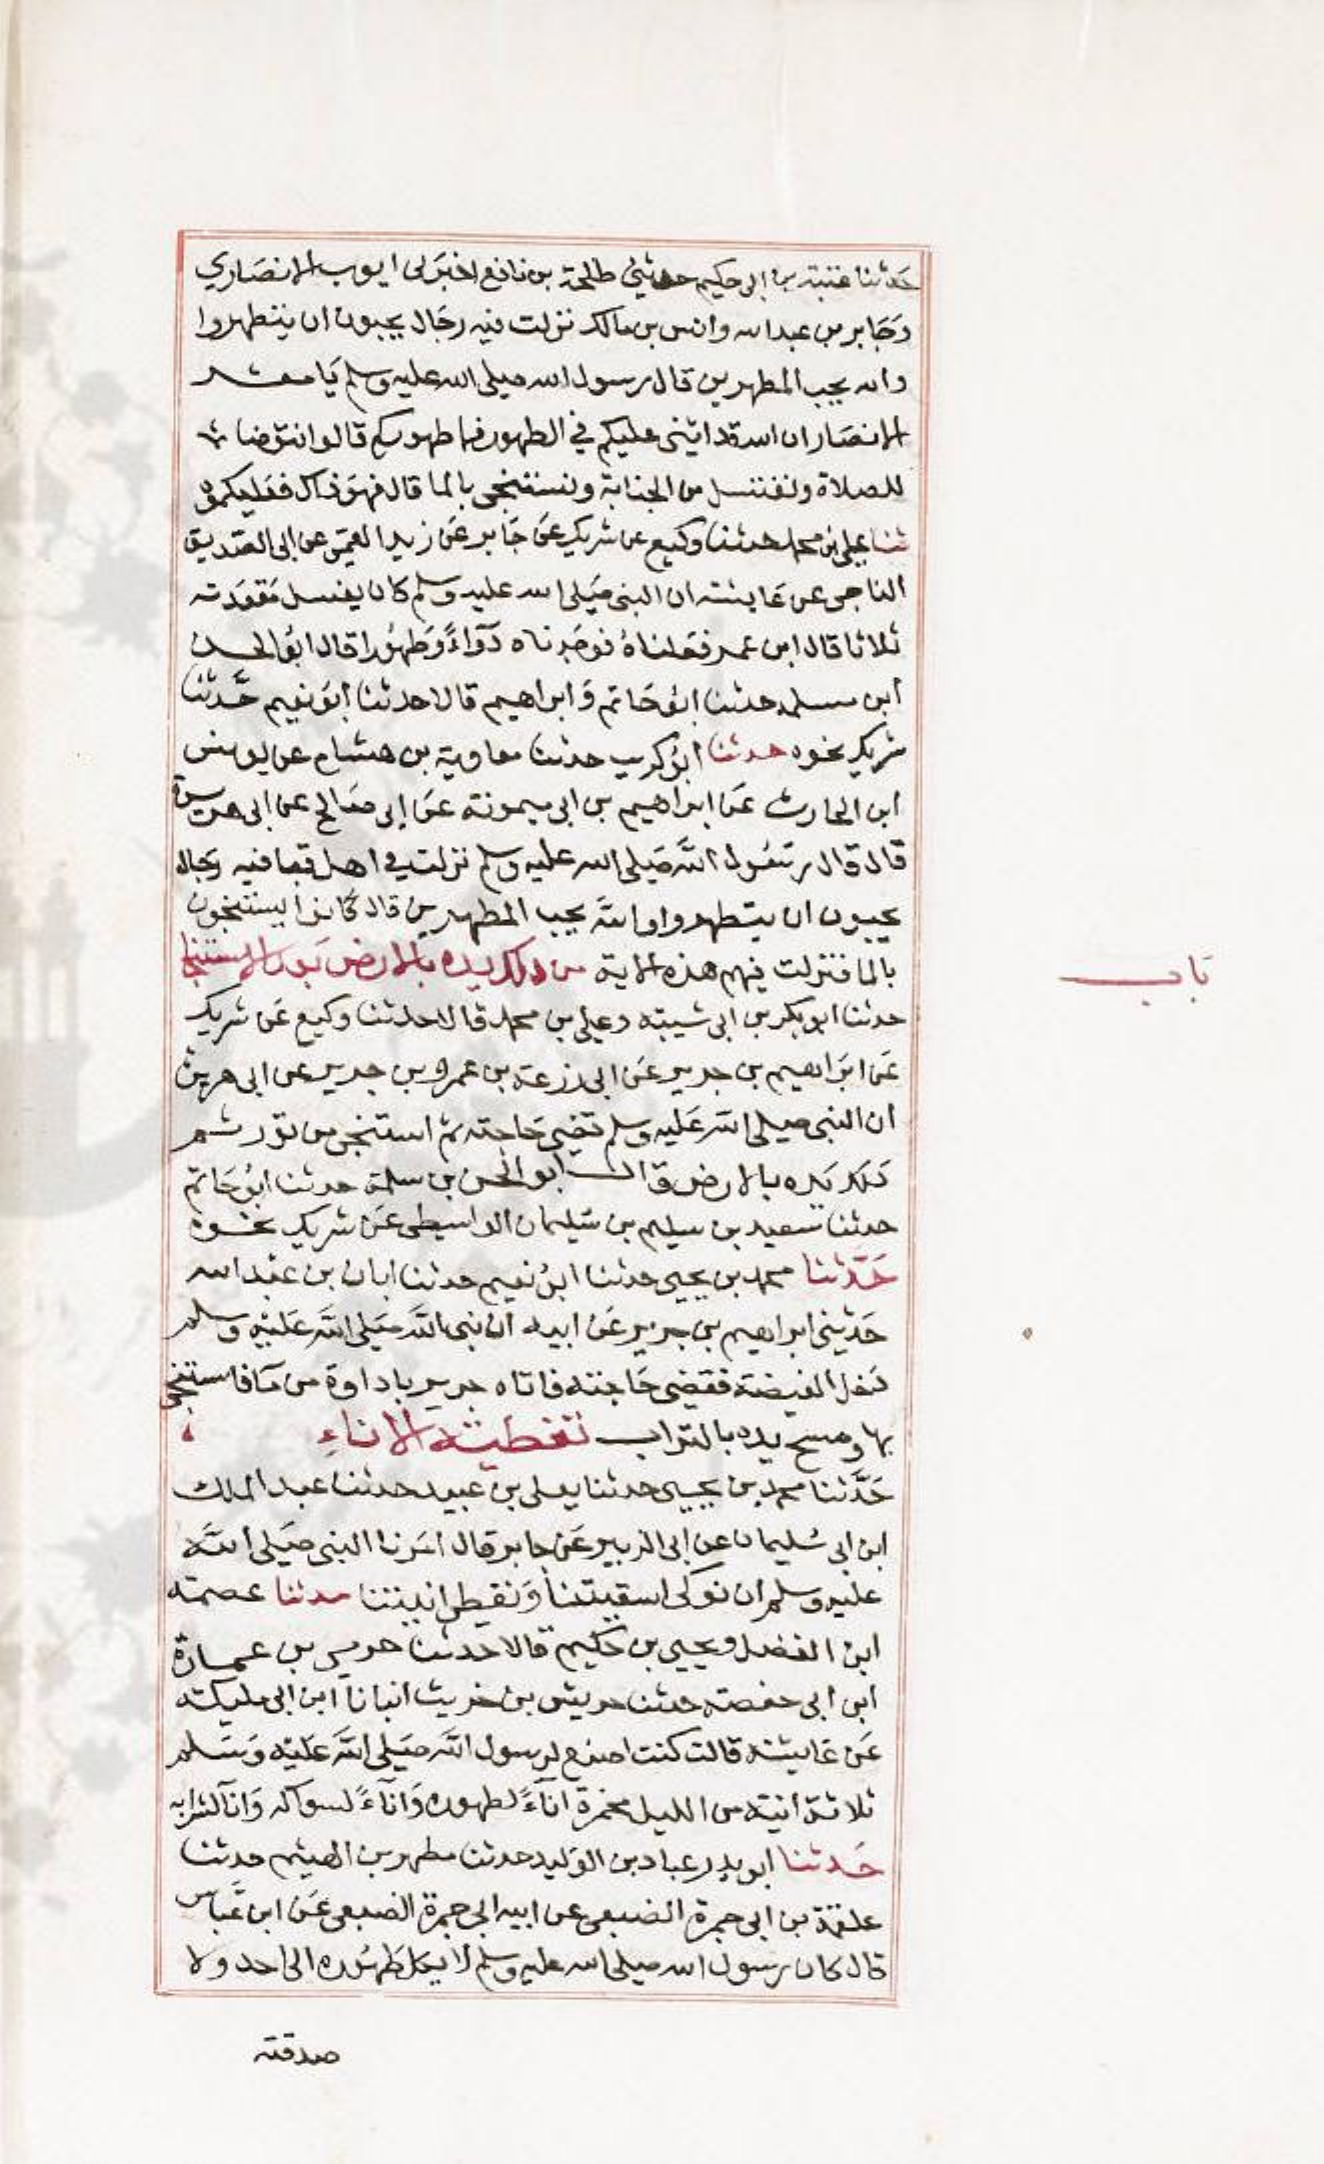 حدثنا عتبة بن ابى حكيم حدثنى طلحة بن نافع اخبرنى ايوب الانصاري
وجابر بن عبد الله وانس بن مالك نزلت فيه رجال يحبون ان يتطهروا
والله يحب المطهرين قال رسول الله صلى الله عليه وسلم يا معشر
الانصار ان الله قد اثنى عليكم في الطهور فما طهوركم قالوا نتوضا
للصلاة ونغتسل من الجنابة ونستنجى بالما قال فهو ذاك فعليكموه
ثنا على بن محمد حدثنا وكيع عن شريك عن جابر عن زيد العمى عن ابى الصديق
الناجى عن عايشه ان النبى صلى الله عليه وسلم كان يغسل مقعدته
ثلاثا قال ابن عمر فعلناه فوجدناه دوآءً وطهُورا قال ابو الحسن
ابن سلمه حدثنا ابو حاتم وابراهيم قالا حدثنا ابو نعيم حدثنا
شريك نحوه حدثنا ابو كريب حدثنا معاوية بن هشام عن يونس
ابن الحارث عن ابراهيم بن ابى ميمونة عن ابى صالح عن ابى هريرة
قال قال رسول الله صلى الله عليه وسلم نزلت في اهل قبا فيه رجال
يحبون ان يتطهروا والله يحب المطهرين قال كانوا يستنجون
بالما فنزلت فيهم هذه الاية من دلك يده بالارض بعد الاستنجا
باب
حدثنا ابو بكر بن ابى شيبة وعلى بن محمد قالا حدثنا وكيع عن شريك
عن ابراهيم بن جرير عن ابى زرعة بن عمرو بن جرير عن ابى هريرة
ان النبى صلى الله عليه وسلم قضى حاجته ثم استنجى من تور ثم
دلك يده بالارض قال ابو الحسن بن سلمة حدثنا ابو حاتم
حدثنا سعيد بن سليم بن سليمان الواسطى عن شريك نحوه
حدثنا محمد بن يحيى حدثنا ابو نعيم حدثنا ابان بن عبد الله
حدثنى ابراهيم بن جرير عن ابيه ان نبى الله صلى الله عليه وسلم
دخل الغيضة فقضى حاجته فاتاه جرير باداوة من مآ فاستنجى
بها ومسح يده بالتراب تغطية الاناء
حدثنا محمد بن يحيى حدثنا يعلى بن عبيد حدثنا عبد الملك
ابن ابى سليمان عن ابى الزبير عن جابر قال امرنا النبى صلى الله
عليه وسلم ان نوكى اسقيتنا ونغطى انيتنا حدثنا عصمة
ابن الفضل ويحيى بن حكيم قالا حدثنا حرمي بن عمارة
ابن ابى حفصة حدثنا حريش بن خريت انبانا ابن ابى مليكة
عن عايشة قالت كنت اصنع لرسول الله صلى الله عليه وسلم
ثلاثة انية من الليل مخمرة اناءً لطهوره واناءً لسواكه وانآ لشرابه
حدثنا ابو بدر عباد بن الوليد حدثنا مطهر بن الهيثم حدثنا
علقمة بن ابى جمرة الضبعى عن ابيه ابى جمرة الضبعى عن ابن عباس
قال كان رسول الله صلى الله عليه وسلم لا يكل طهوره الى احد ولا
صدقته